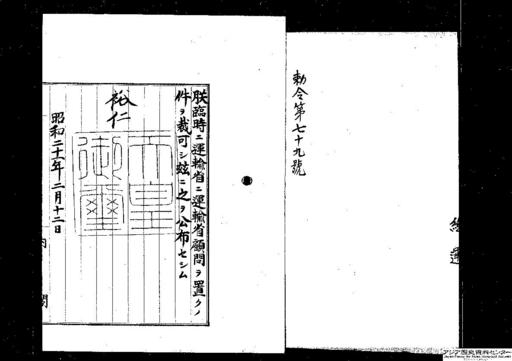 勅令第七十九號
朕臨時ニ運輸省ニ運輸省顧問ヲ置クノ
件ヲ裁可シ玆ニ之ヲ公布セシム
裕仁
天皇御璽
昭和二十一年二月十二日
内閣
アジア歴史資料センター